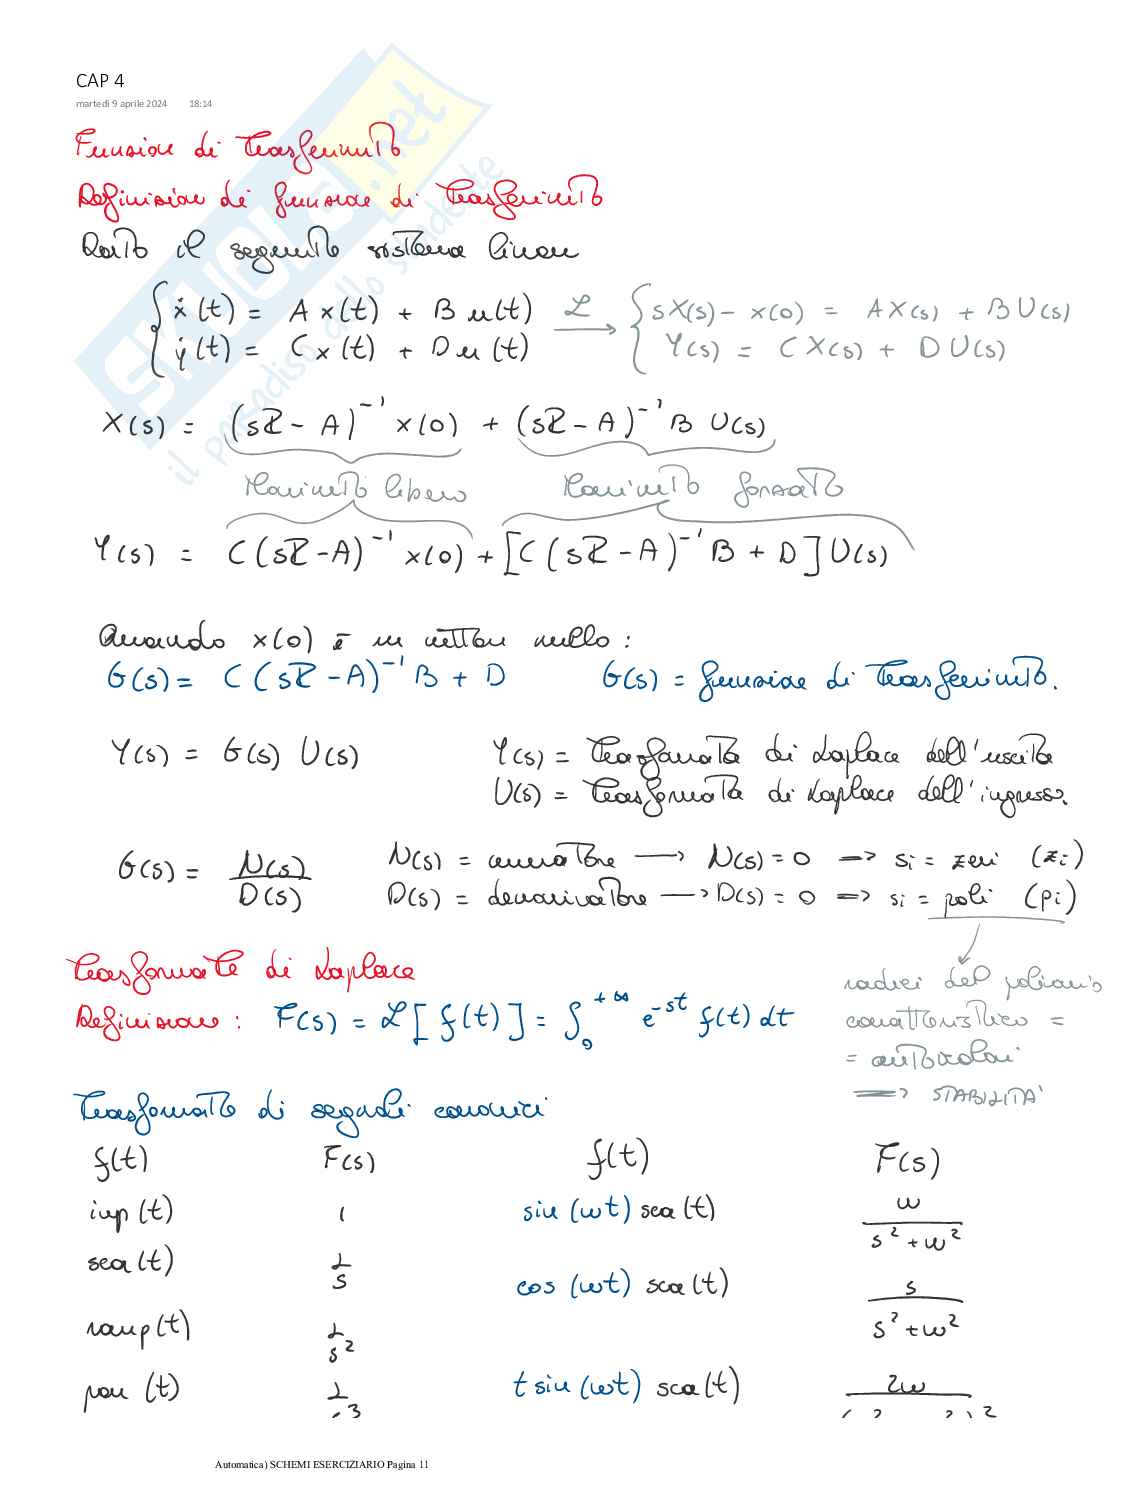 CAP 4
martedì 9 aprile 2024 18:14
Funzione di trasferimento
Definizione di funzione di trasferimento
Dato il seguente sistema lineare
ẋ(t) = A x(t) + B u(t) ℒ→ sX(s) - x(0) = A X(s) + B U(s)
ẏ(t) = C x(t) + D u(t) Y(s) = C X(s) + D U(s)
X(s) = (sI - A)^-1 x(0) + (sI - A)^-1 B U(s)
Movimento libero Movimento forzato
Y(s) = C (sI - A)^-1 x(0) + [C (sI - A)^-1 B + D] U(s)
Quando x(0) è un vettore nullo :
G(s) = C (sI - A)^-1 B + D G(s) = funzione di trasferimento.
Y(s) = G(s) U(s) Y(s) = trasformata di Laplace dell'uscita
U(s) = trasformata di Laplace dell'ingresso.
G(s) = N(s)/D(s) N(s) = numeratore → N(s) = 0 => si = zeri (zi)
D(s) = denominatore → D(s) = 0 => si = poli (pi)
Trasformate di Laplace
radici del polinomio
Definizione : F(s) = ℒ[f(t)] = ∫_0^+∞ e^-st f(t) dt
caratteristico =
= autovalori
=> STABILITA'
Trasformate di segnali canonici
f(t) F(s) f(t) F(s)
imp(t) 1 sin(wt) sca(t) w/(s²+w²)
sca(t) 1/s cos(wt) sca(t) s/(s²+w²)
ramp(t) 1/s²
par(t) 1/s³ t sin(wt) sca(t) 2w
Automatica) SCHEMI ESERCIZIARIO Pagina 11
SKUOLA.net
il paradiso dello studente